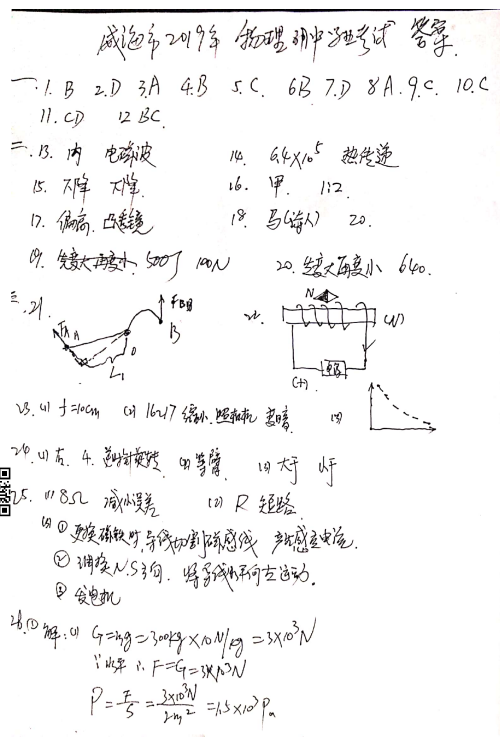 威海市2019年 物理初中学业考试 答案
一. 1. B 2. D 3. A 4. B 5. C. 6B 7. D 8 A. 9. C. 10. C
11. CD 12 BC.
二. 13. 内 电磁波 14. 6.4×10⁵ 热传递
15. 下降 下降. 16. 甲. 1:2.
17. 偏高. 凸透镜 18. 马(诗人) 20.
19. 500J 100N 20. 先变大再变小 640.
三. 21. FA A O L₁ B
22. N (N) 电源 (+)
23. (1) f=10cm (2) 16~17 缩小. 照相机 变暗 (3)
24. (1) 右. 4. 逆时针旋转 (2) 等臂 (3) 大于
25. (1) 8Ω 减小误差 (2) R 短路
(3) ① 导线切割磁感线 产生感应电流.
② 调换N.S方向. 将导线水平向左运动.
③ 发电机
26. ① 解: (1) G=mg=300kg×10N/kg=3×10³N
∵水平 ∴F=G=3×10³N
P=F/S=3×10³N/2m²=1.5×10³Pa